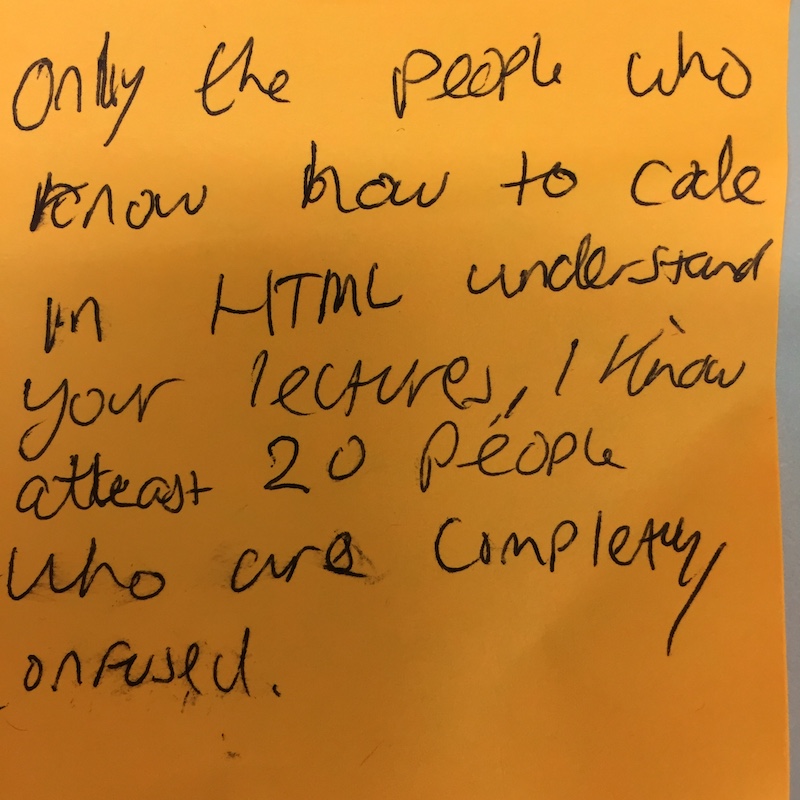 Only the people who
know how to code
in HTML understand
your lectures, I know
atleast 20 people
who are completly
onfused.